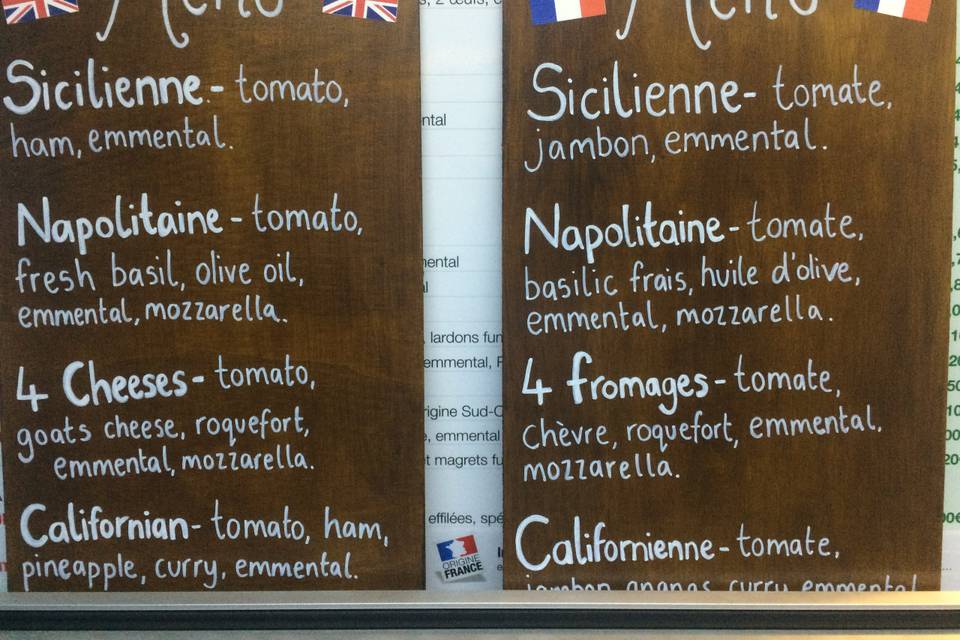 Menu
Sicilienne - tomato,
ham, emmental.
Napolitaine - tomato,
fresh basil, olive oil,
emmental, mozzarella.
4 Cheeses - tomato,
goats cheese, roquefort,
emmental, mozzarella.
Californian - tomato, ham,
pineapple, curry, emmental.
Menu
Sicilienne - tomate,
jambon, emmental.
Napolitaine - tomate,
basilic frais, huile d'olive,
emmental, mozzarella.
4 fromages - tomate,
chèvre, roquefort, emmental.
mozzarella.
Californienne - tomate,
jambon ananas curry emmental
2 œufs,
lardons
emmental,
Sud-O
emmental
et magrets
effilées,
ORIGINE
FRANCE